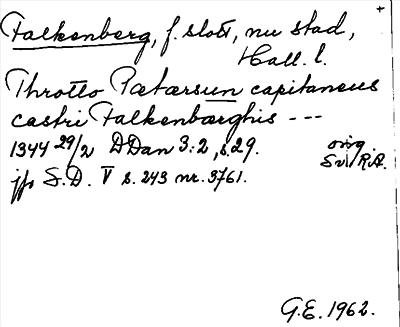 +
Falkenberg, f. slott, nu stad,
Hall. l.
Throtto Pætærsun capitaneus
castri Falkenbærghis ---
1344 29/2 DDan 3:2, s. 29. orig. Sv. R.A.
jfr S.D. V s. 243 nr. 3761.
G.E. 1962.